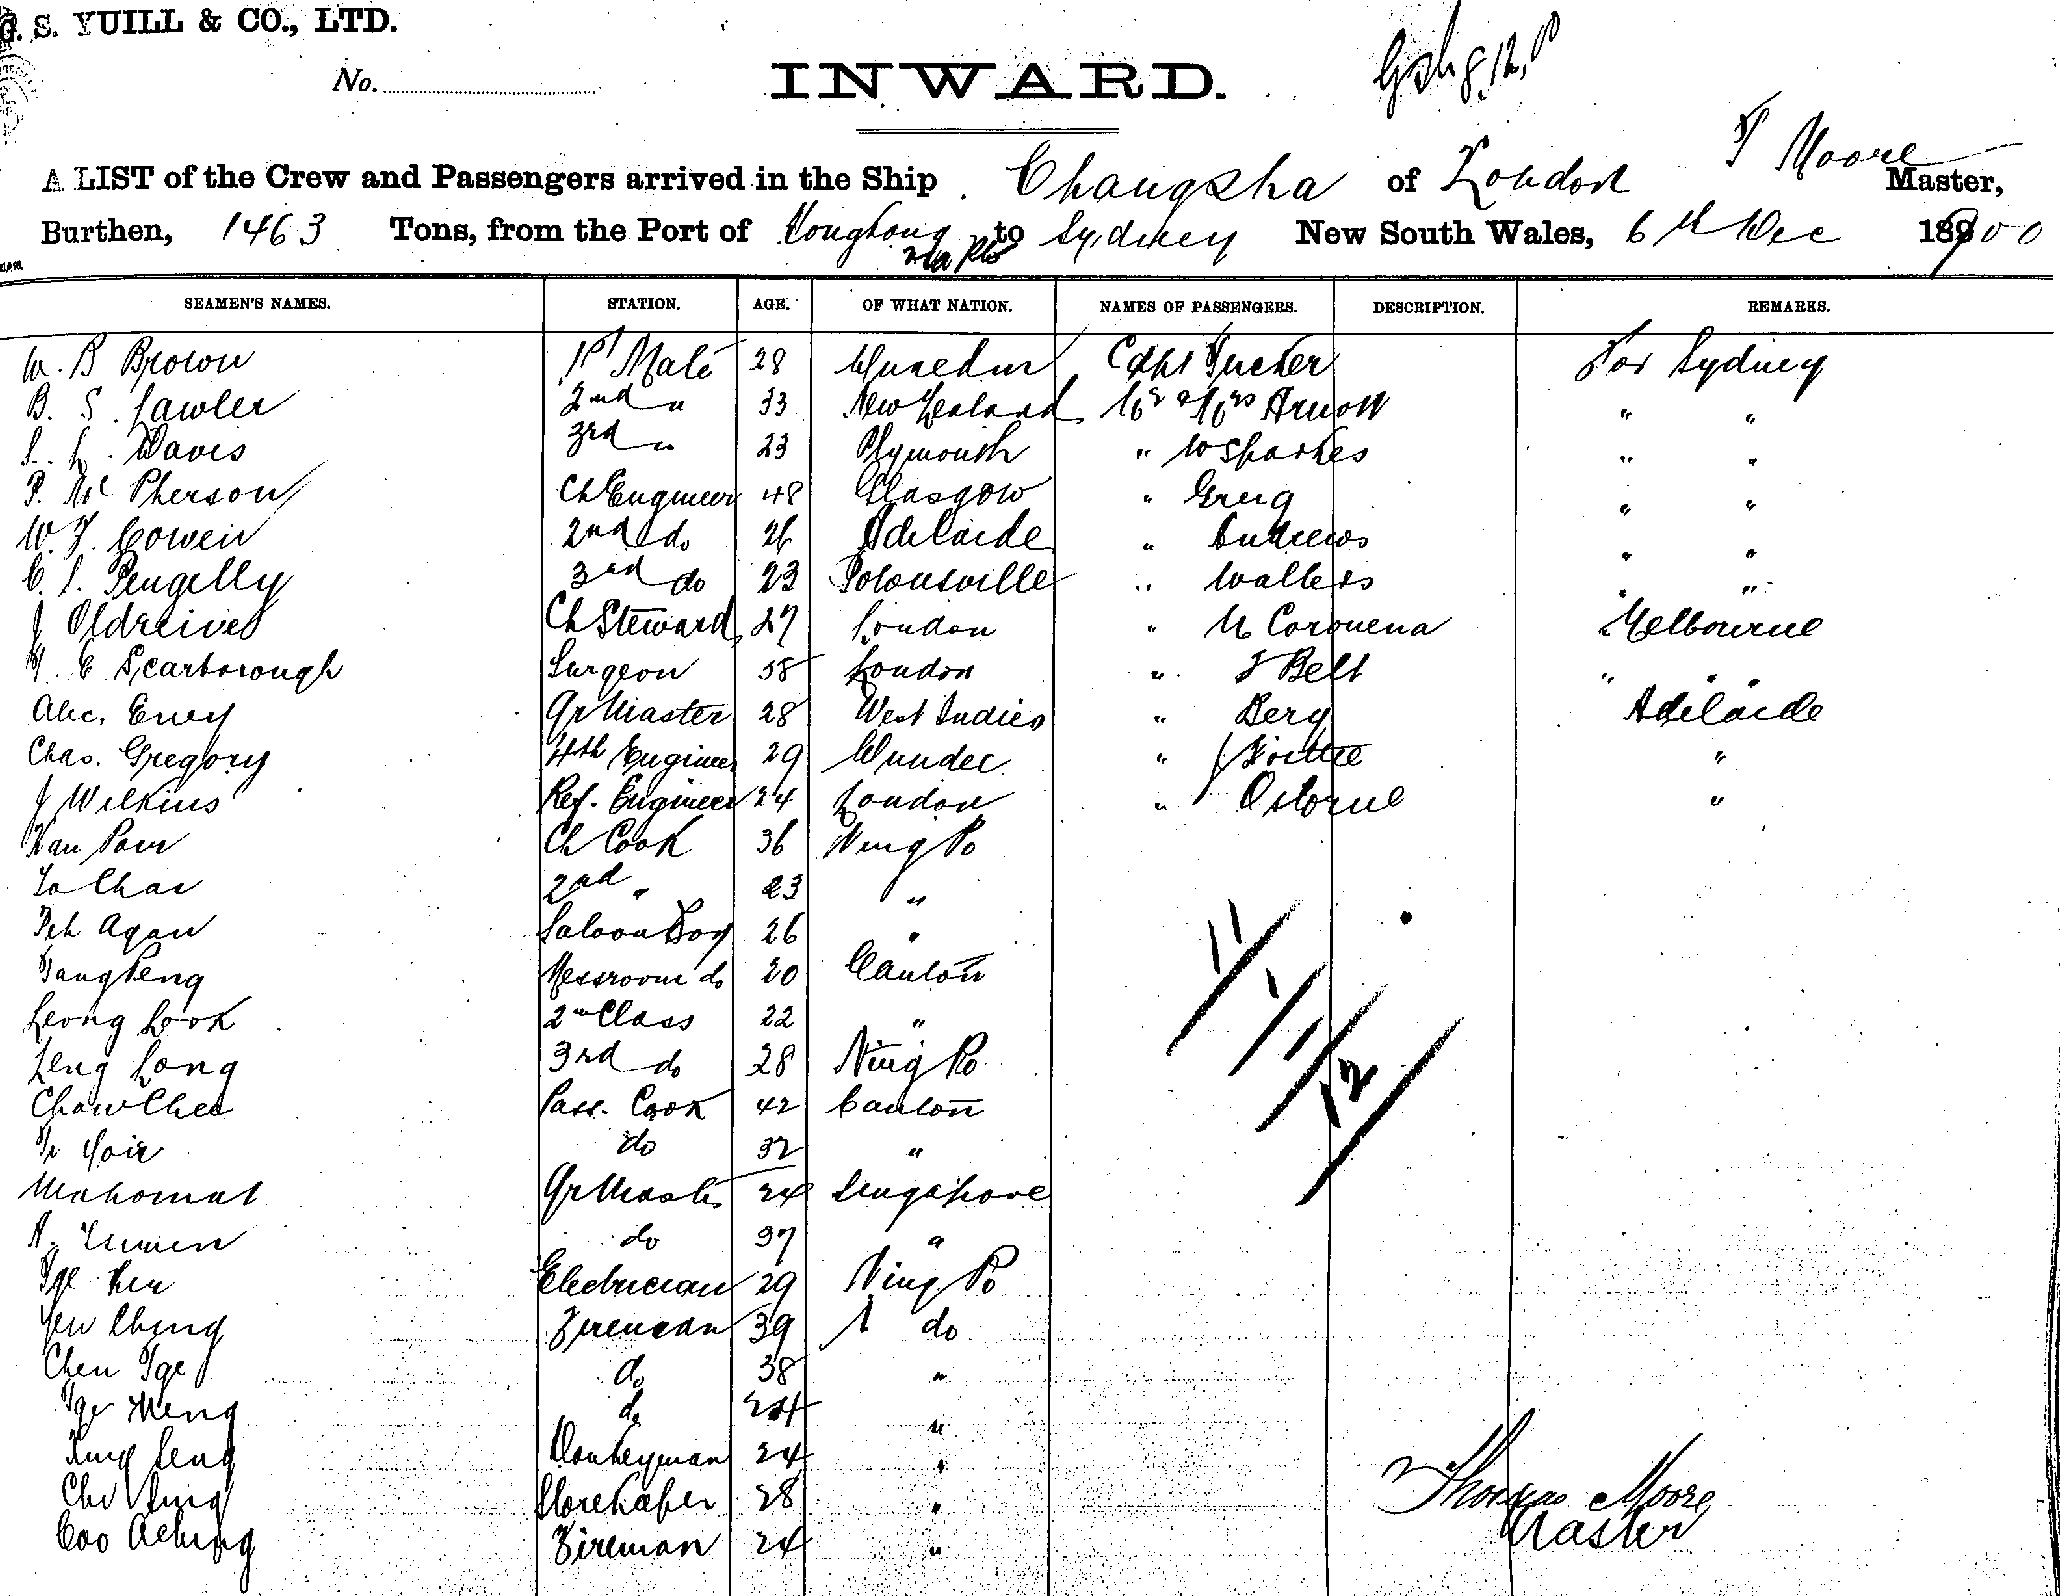 G. S. YUILL & CO., LTD.
No.
INWARD.
A LIST of the Crew and Passengers arrived in the Ship Changsha of London T Moore Master,
Burthen, 1463 Tons, from the Port of Hongkong via Pts to Sydney New South Wales, 6th Dec 1900
SEAMEN'S NAMES. STATION. AGE. OF WHAT NATION. NAMES OF PASSENGERS. DESCRIPTION. REMARKS.
W. B Brown 1st Mate 28 Dunedin Capt Tucker For Sydney
B. S. Lawler 2nd " 33 New Zealand Mr & Mrs Arnott " "
S. L. Davis 3rd " 23 Plymouth " W Sparkes " "
P. Mc Pherson Ch Engineer 48 Glasgow " Greig " "
W. J. Cowen 2nd do 26 Adelaide " Andrews " "
C. S. Pengelly 3rd do 23 Townsville " Walters " "
J Oldreive Ch Steward 27 London " Coronena Melbourne
E Scarborough Surgeon 58 London " J Belt " "
Alec. Qr Master 28 West Indies " Berg Adelaide
Chas. Gregory 4th Engineer 29 Dundee " J "
J Wilkins Ref. Engineer 24 London " Osborne "
Ch Cook 36 Ning Po
Lo Chai 2nd " 23 "
Agan Saloon Boy 26 "
Tang Peng Messroom do 20 Canton
Leong Look 2nd Class 22 "
Leng Long 3rd do 28 Ning Po
Chow Chee Pass. Cook 42 Canton
do 32 "
Mahomat Qr Master 24 Singapore
do 37 "
Electrician 29 Ning Po
Yew Ching Fireman 39 do
Chen Tge do 38 "
Tge Meng do 24 "
Kung Seng Donkeyman 24 "
Storekeeper 28 "
Coo Aching Fireman 24 "
11/1/1/12
Thomas Moore
Master